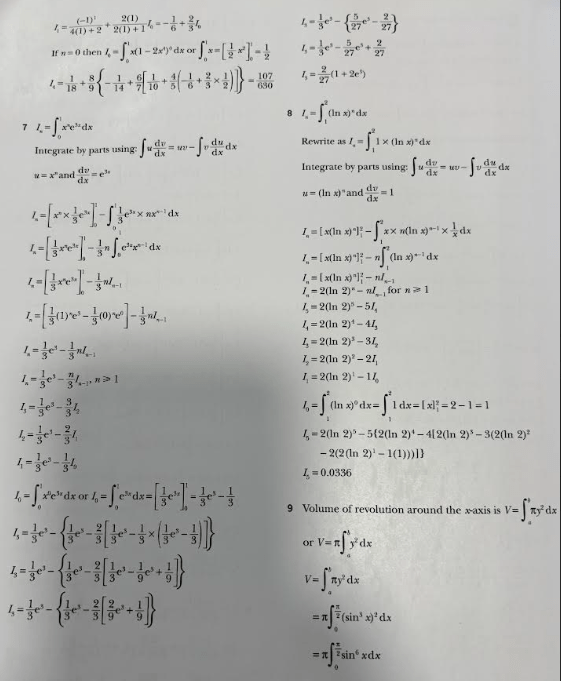 I₁ = (−1)¹/(4(1) + 2) + 2(1)/(2(1) + 1) I₀ = −1/6 + 2/3 I₀
If n = 0 then I₀ = ∫₀¹ x(1 − 2x⁴)⁰ dx or ∫₀¹ x = [1/2 x²]₀¹ = 1/2
I₄ = 1/18 + 8/9{−1/14 + 6/7[1/10 + 4/5(−1/6 + 2/3 × 1/2)]} = 107/630
7 Iₙ = ∫₀¹ xⁿe³ˣ dx
Integrate by parts using: ∫u dv/dx = uv − ∫v du/dx dx
u = xⁿ and dv/dx = e³ˣ
Iₙ = [xⁿ × 1/3 e³ˣ]₀¹ − ∫₀¹ 1/3 e³ˣ × nxⁿ⁻¹ dx
Iₙ = [1/3 xⁿe³ˣ]₀¹ − 1/3 n ∫₀¹ e³ˣxⁿ⁻¹ dx
Iₙ = [1/3 xⁿe³ˣ]₀¹ − 1/3 nIₙ₋₁
Iₙ = [1/3 (1)ⁿe³ − 1/3 (0)ⁿe⁰] − 1/3 nIₙ₋₁
Iₙ = 1/3 e³ − 1/3 nIₙ₋₁
Iₙ = 1/3 e³ − n/3 Iₙ₋₁, n ⩾ 1
I₃ = 1/3 e³ − 3/3 I₂
I₂ = 1/3 e³ − 2/3 I₁
I₁ = 1/3 e³ − 1/3 I₀
I₀ = ∫₀¹ x⁰e³ˣ dx or I₀ = ∫₀¹ e³ˣ dx = [1/3 e³ˣ]₀¹ = 1/3 e³ − 1/3
I₃ = 1/3 e³ − {1/3 e³ − 2/3[1/3 e³ − 1/3 × (1/3 e³ − 1/3)]}
I₃ = 1/3 e³ − {1/3 e³ − 2/3[1/3 e³ − 1/9 e³ + 1/9]}
I₃ = 1/3 e³ − {1/3 e³ − 2/3[2/9 e³ + 1/9]}
I₃ = 1/3 e³ − {5/27 e³ − 2/27}
I₃ = 1/3 e³ − 5/27 e³ + 2/27
I₃ = 2/27 (1 + 2e³)
8 Iₙ = ∫₁² (ln x)ⁿ dx
Rewrite as Iₙ = ∫₁² 1 × (ln x)ⁿ dx
Integrate by parts using: ∫u dv/dx = uv − ∫v du/dx dx
u = (ln x)ⁿ and dv/dx = 1
Iₙ = [x(ln x)ⁿ]₁² − ∫₁² x × n(ln x)ⁿ⁻¹ × 1/x dx
Iₙ = [x(ln x)ⁿ]₁² − n∫₁² (ln x)ⁿ⁻¹ dx
Iₙ = [x(ln x)ⁿ]₁² − nIₙ₋₁
Iₙ = 2(ln 2)ⁿ − nIₙ₋₁ for n ⩾ 1
I₅ = 2(ln 2)⁵ − 5I₄
I₄ = 2(ln 2)⁴ − 4I₃
I₃ = 2(ln 2)³ − 3I₂
I₂ = 2(ln 2)² − 2I₁
I₁ = 2(ln 2)¹ − 1I₀
I₀ = ∫₁² (ln x)⁰ dx = ∫₁² 1 dx = [x]₁² = 2 − 1 = 1
I₅ = 2(ln 2)⁵ − 5{2(ln 2)⁴ − 4[2(ln 2)³ − 3(2(ln 2)²
− 2(2(ln 2)¹ − 1(1)))]}
I₅ = 0.0336
9 Volume of revolution around the x-axis is V = ∫ₐᵇ πy² dx
or V = π∫ₐᵇ y² dx
V = ∫ₐᵇ πy² dx
= π∫₀^(π/2) (sin³ x)² dx
= π∫₀^(π/2) sin⁶ xdx